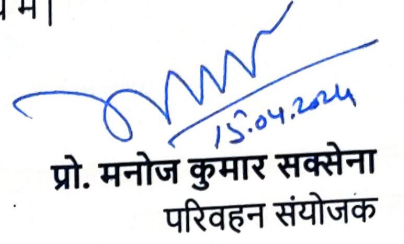 में।
15.04.2024
प्रो. मनोज कुमार सक्सेना
परिवहन संयोजक